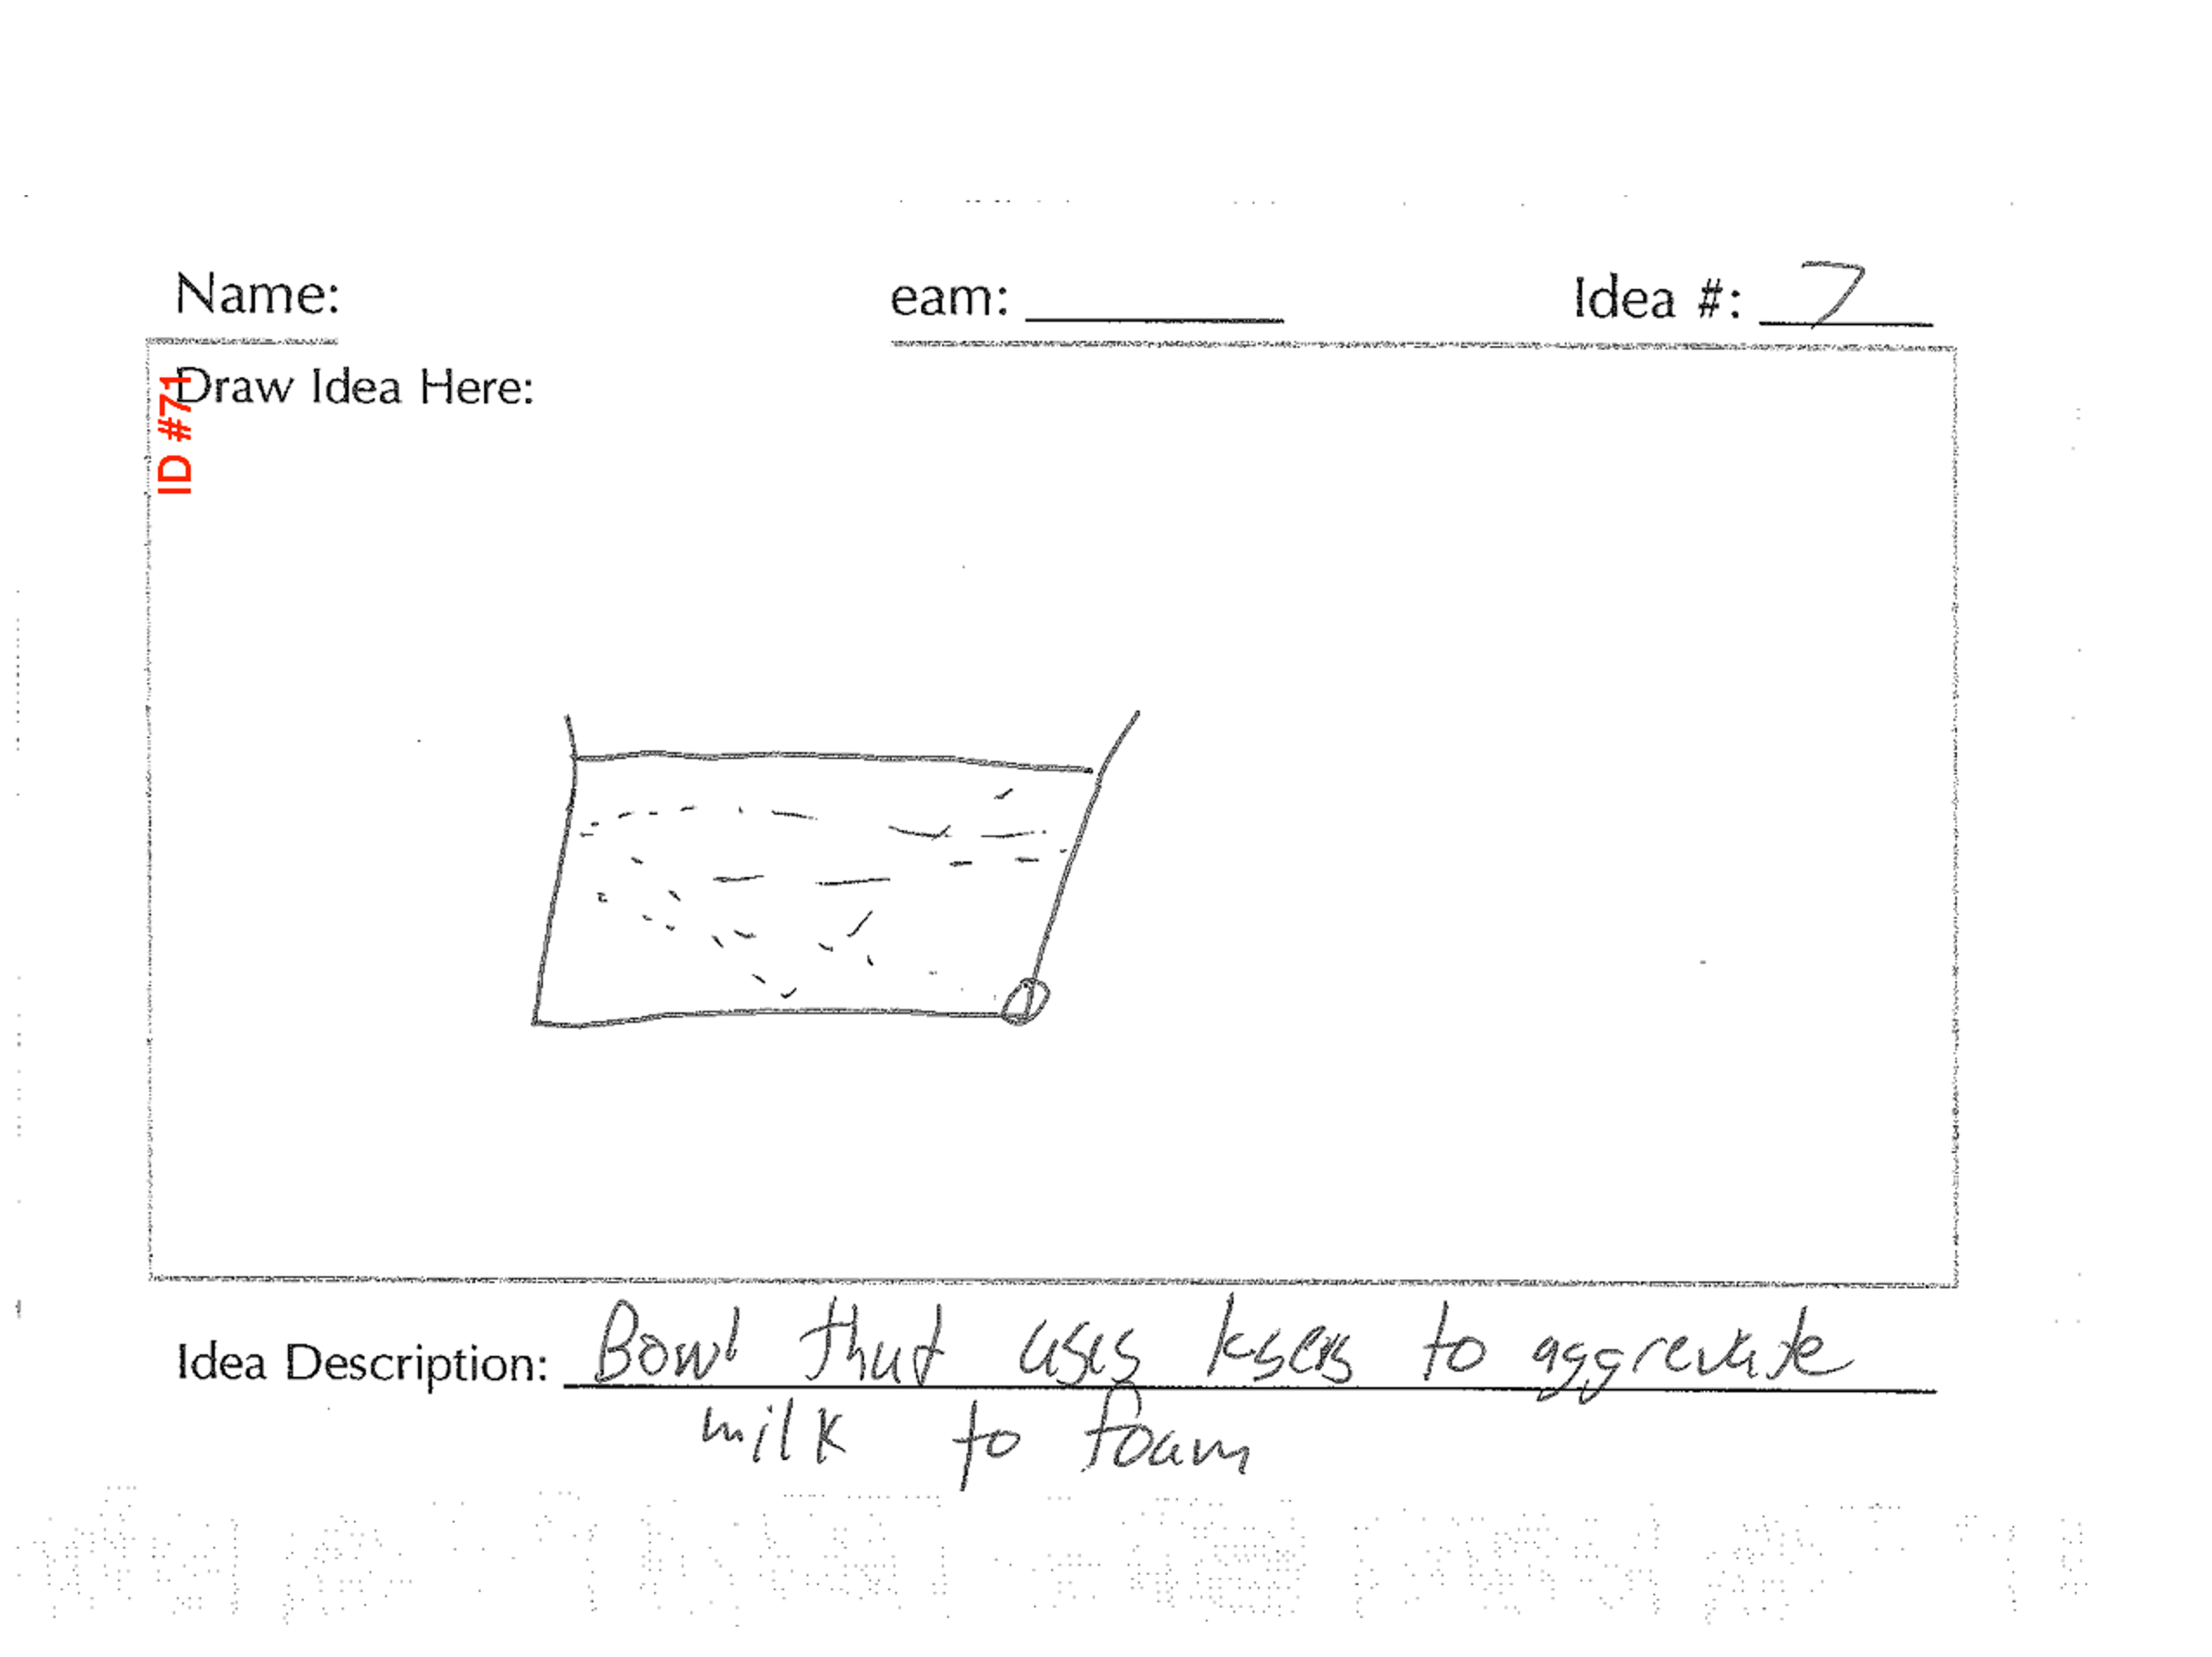 Name: eam: Idea #: 7
ID #71
Draw Idea Here:
Idea Description: Bowl that uses to aggrevate
milk to foam